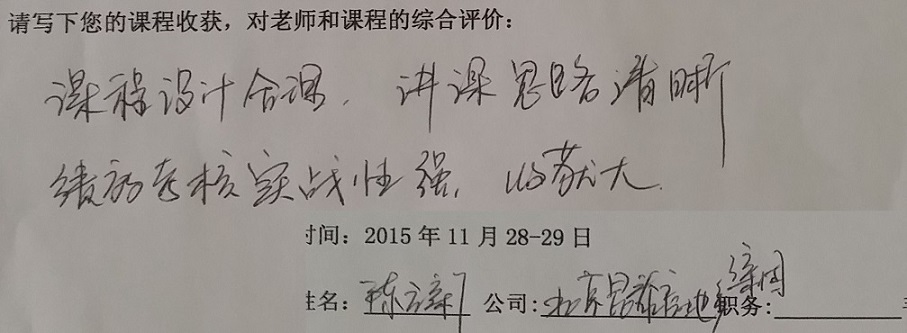 请写下您的课程收获，对老师和课程的综合评价：
课程设计合理，讲课思路清晰
绩效考核实战性强，收获大
时间：2015年11月28-29日
姓名：陈 公司：北京 地 职务：